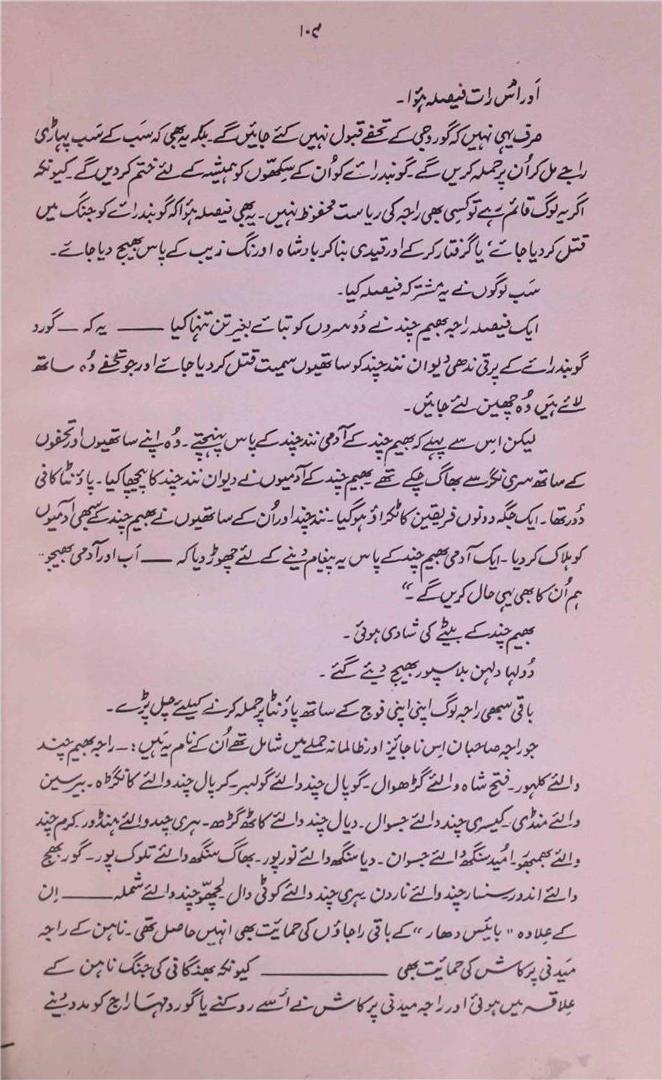 ۱۰۴
اور اُس رات فیصلہ ہؤا۔
صرف یہی نہیں کہ گورو جی کے تحفے قبول نہیں کئے جائیں گے۔ بلکہ یہ بھی کہ سَب کے سَب پہاڑی
راجے مل کر اُن پر حملہ کریں گے۔ گوبند رائے کو اُن کے سِکھوں کو ہمیشہ کے لئے ختم کر دیں گے۔ کیونکہ
اگر یہ لوگ قائم رہے تو کسی بھی راجہ کی ریاست محفوظ نہیں۔ یہ بھی فیصلہ ہؤا کہ گوبند رائے کو جنگ میں
قتل کر دیا جائے، یا گرفتار کر کے اور قیدی بنا کر بادشاہ اورنگ زیب کے پاس بھیج دیا جائے۔
سَب لوگوں نے یہ مشترکہ فیصلہ کیا۔
ایک فیصلہ راجہ بھیم چند نے دُوسروں کو بتائے بغیر تنِ تنہا کیا ——— یہ کہ — گورو
گوبند رائے کے پرتی ندھی دیوان نند چند کو ساتھیوں سمیت قتل کر دیا جائے اور جو تحفے وُہ ساتھ
لائے ہَیں وُہ چھین لئے جائیں۔
لیکن اس سے پہلے کہ بھیم چند کے آدمی نند چند کے پاس پہنچتے۔ وُہ اپنے ساتھیوں اور تحفوں
کے ساتھ سری نگر سے بھاگ چکے تھے بھیم چند کے آدمیوں نے دیوان نند چند کا پیچھا کیا۔ پاؤنٹا کافی
دُور تھا۔ ایک جگہ دونوں فریقین کا ٹکراؤ ہو گیا۔ نند چند اور اُن کے ساتھیوں نے بھیم چند کے سبھی آدمیوں
کو ہلاک کر دیا۔ ایک آدمی بھیم چند کے پاس یہ پیغام دینے کے لئے چھوڑ دیا کہ —— اَب اور آدمی بھیجو۔۔
ہم اُن کا بھی یہی حال کریں گے۔“
بھیم چند کے بیٹے کی شادی ہوئی۔
دُولہا دلہن بلاسپور بھیج دیئے گئے۔
باقی سبھی راجہ لوگ اپنی اپنی فوج کے ساتھ پاؤنٹا پر حملہ کرنے کیلئے چل پڑے۔
جو راجہ صاحبان اِس ناجائز اور ظالمانہ حملے میں شامل تھے اُن کے نام یہ ہَیں :۔ راجہ بھیم چند
والئے کلہور۔ فتح شاہ والئے گڑھوال۔ گوپال چند والئے گولیر۔ کرپال چند والئے کانگڑہ۔ بیرسین
والئے منڈی۔ کیسری چند والئے جسوال۔ دیال چند والئے کاٹھ گڑھ۔ ہری چند والئے ہنڈور۔ کرم چند
والئے بھمبھور۔ اُمید سنگھ والئے جسوان۔ دیا سنگھ والئے نور پور۔ بھاگ سنگھ والئے تلوک پور۔ گور بھج
والئے اندور سنسار چند والئے ناردن ہری چند والئے کوٹی دال۔ لچھو چند والئے شملہ ——— اِن
کے علاوہ "بائیس دھار" کے باقی راجاؤں کی حمائت بھی انہیں حاصل تھی۔ ناہن کے راجہ
میدنی پرکاش کی حمائت بھی ————— کیونکہ بھنگانی کی جنگ ناہن کے
علاقہ میں ہوئی اور راجہ میدنی پرکاش نے اُسے روکنے یا گورو مہاراج کو مدد دینے